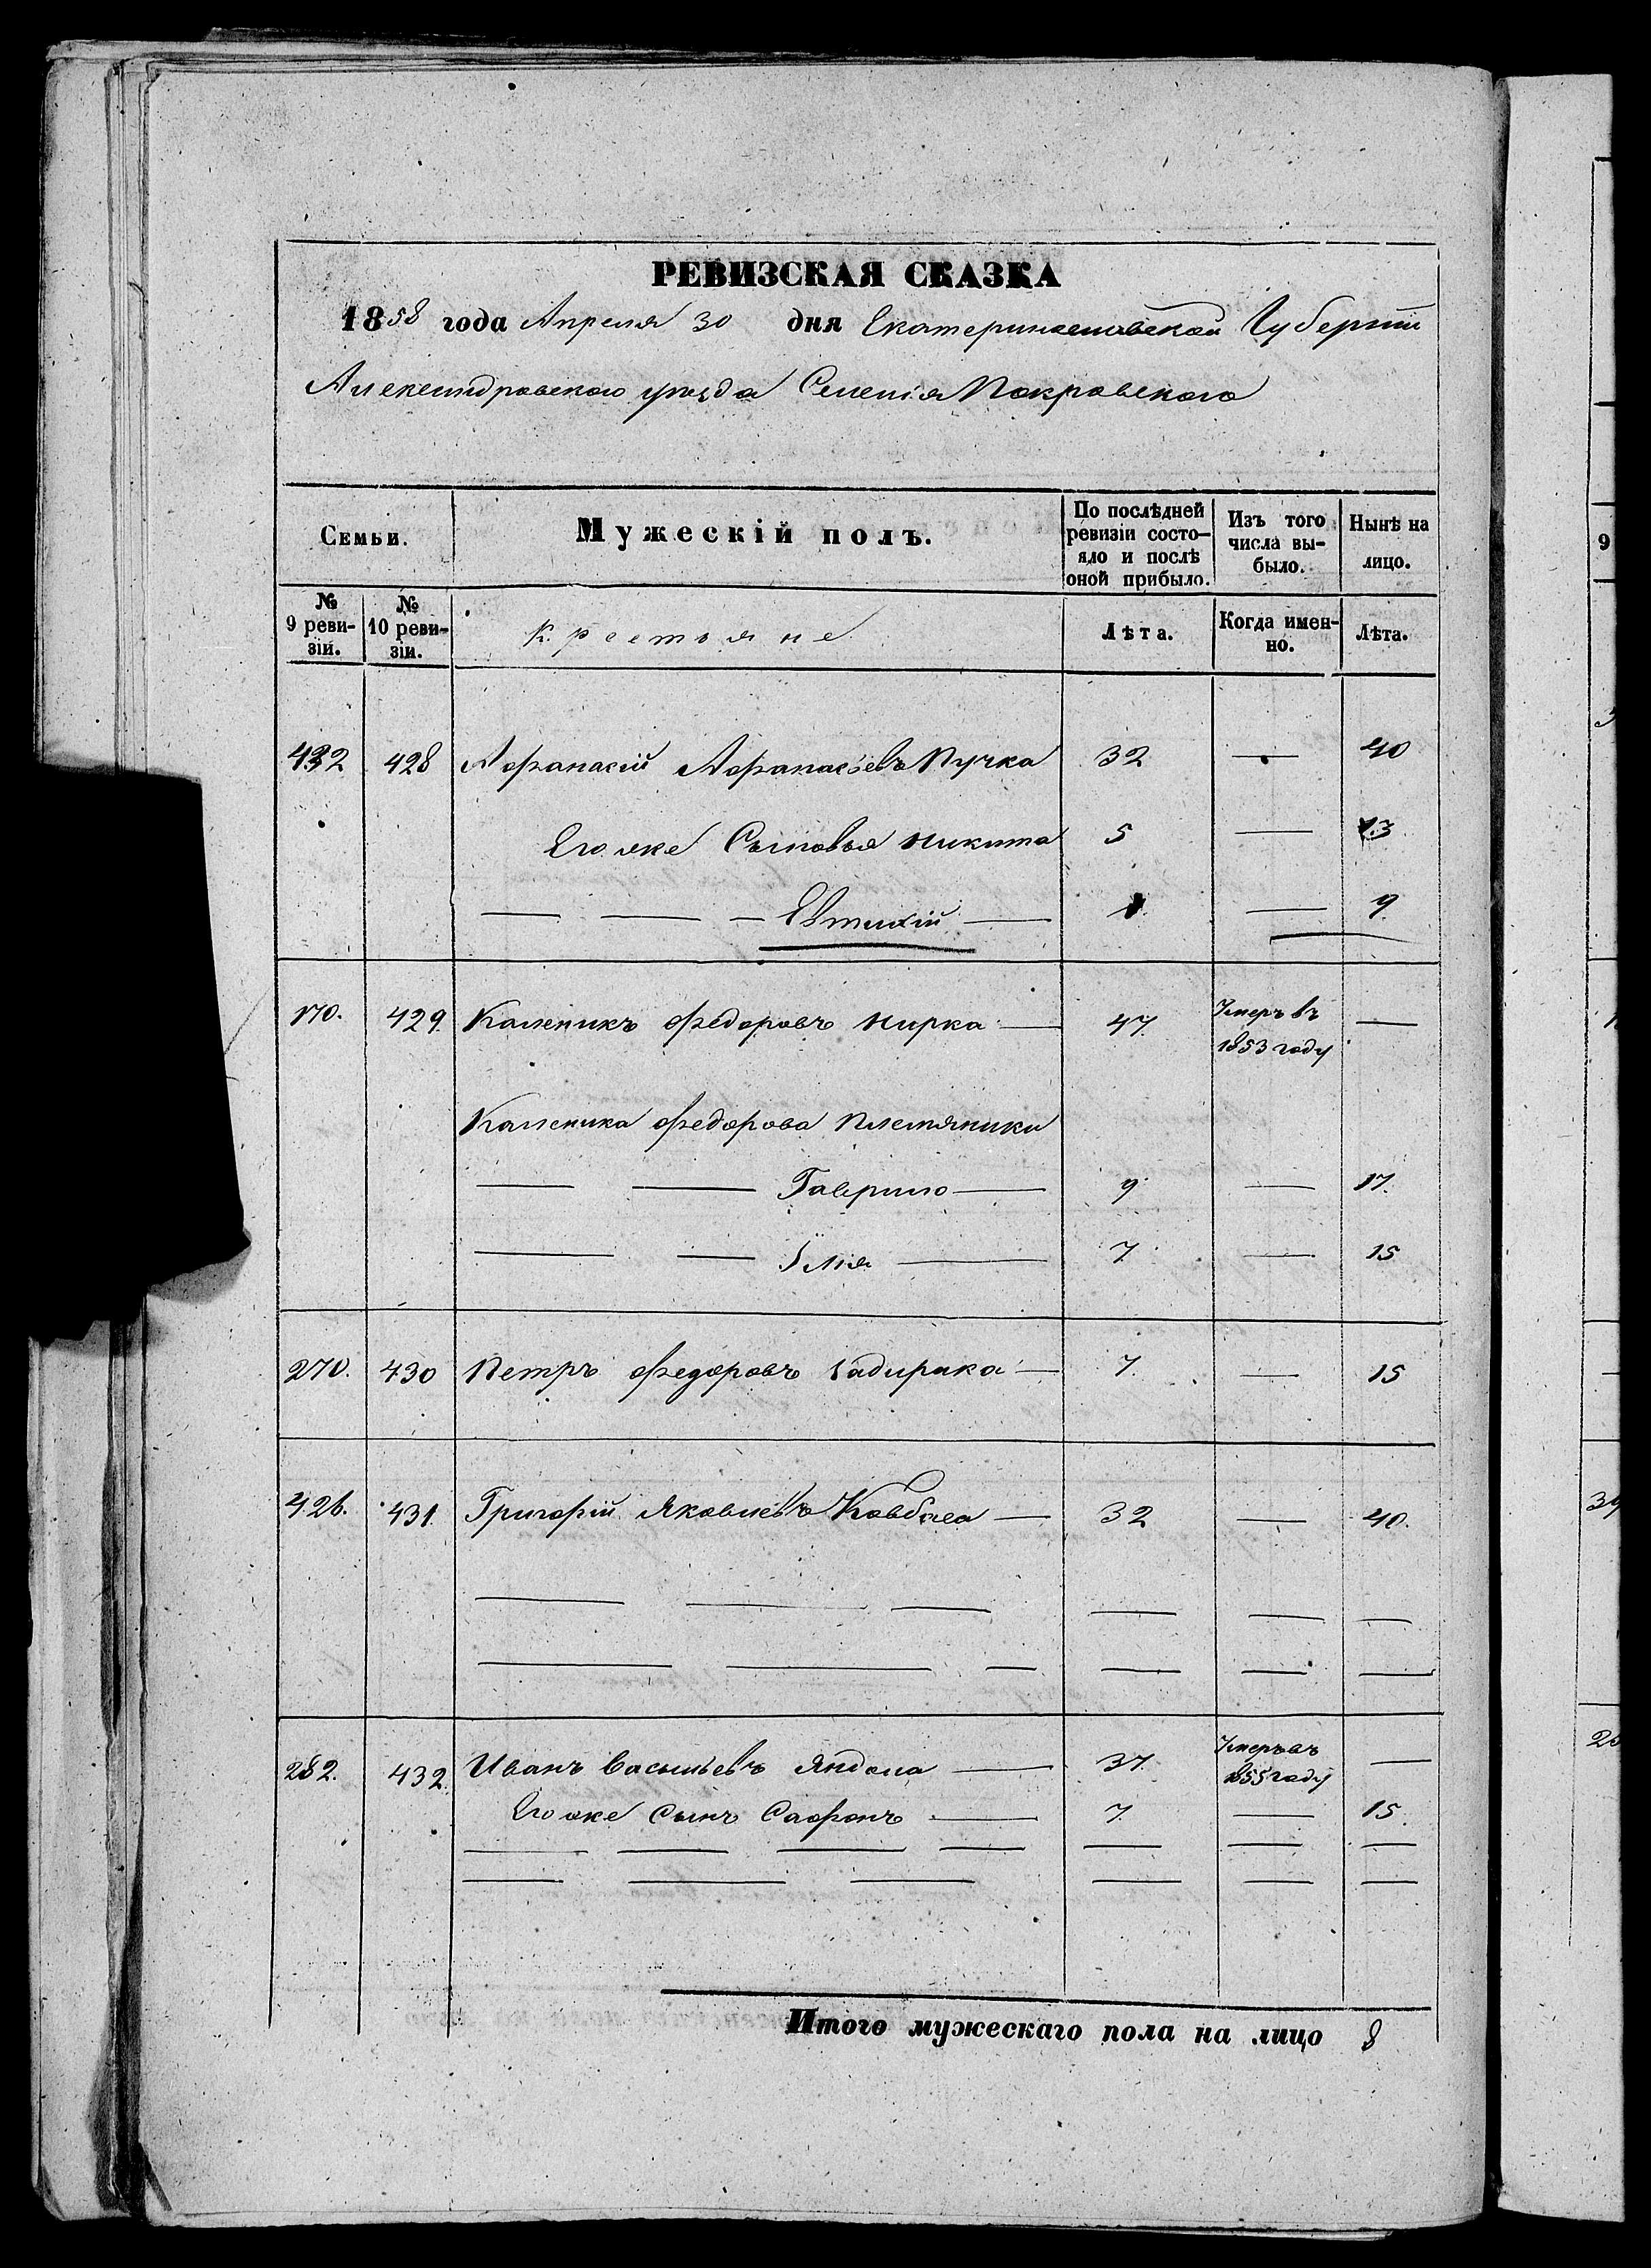 РЕВИЗСКАЯ СКАЗКА
1858 года Апреля 30 дня Екатеринославской Губернiи
Александровского уезда Селенiя Покровского
Семьи. Мужескій полъ. По послѣдней ревизіи состо-яло и послѣ оной прибыло. Изъ того числа вы-было. Нынѣ на лицо.
№ 9 реви-зіи. № 10 реви-зіи. Крестьяне Лѣта. Когда имен-но. Лѣта.
432 428 Афанасій Афанасьевъ Пучка 32 — 40
Его же Сыновья Никита 5 — 13
— — — Евтихій — 1. — 9
170. 429. Каленикъ Федоровъ Нирка — 47. Умеръ въ 1853 году —
Каленика Федорова племяники
— — Гаврило — 9 — 17.
— — Илiя — 7. — 15
270. 430 Петръ Федоровъ — 7. — 15
426. 431. Григорій Яковлевъ Ковбаса — 32 — 40.
— — — — — —
— — — — — —
282. 432. Иванъ Васильевъ Яндола — 37. Умеръ въ 1855 году —
Его же Сынъ Сафонъ — 7. — 15.
— — — — — — —
— — — — — —
Итого мужескаго пола на лицо 8
9